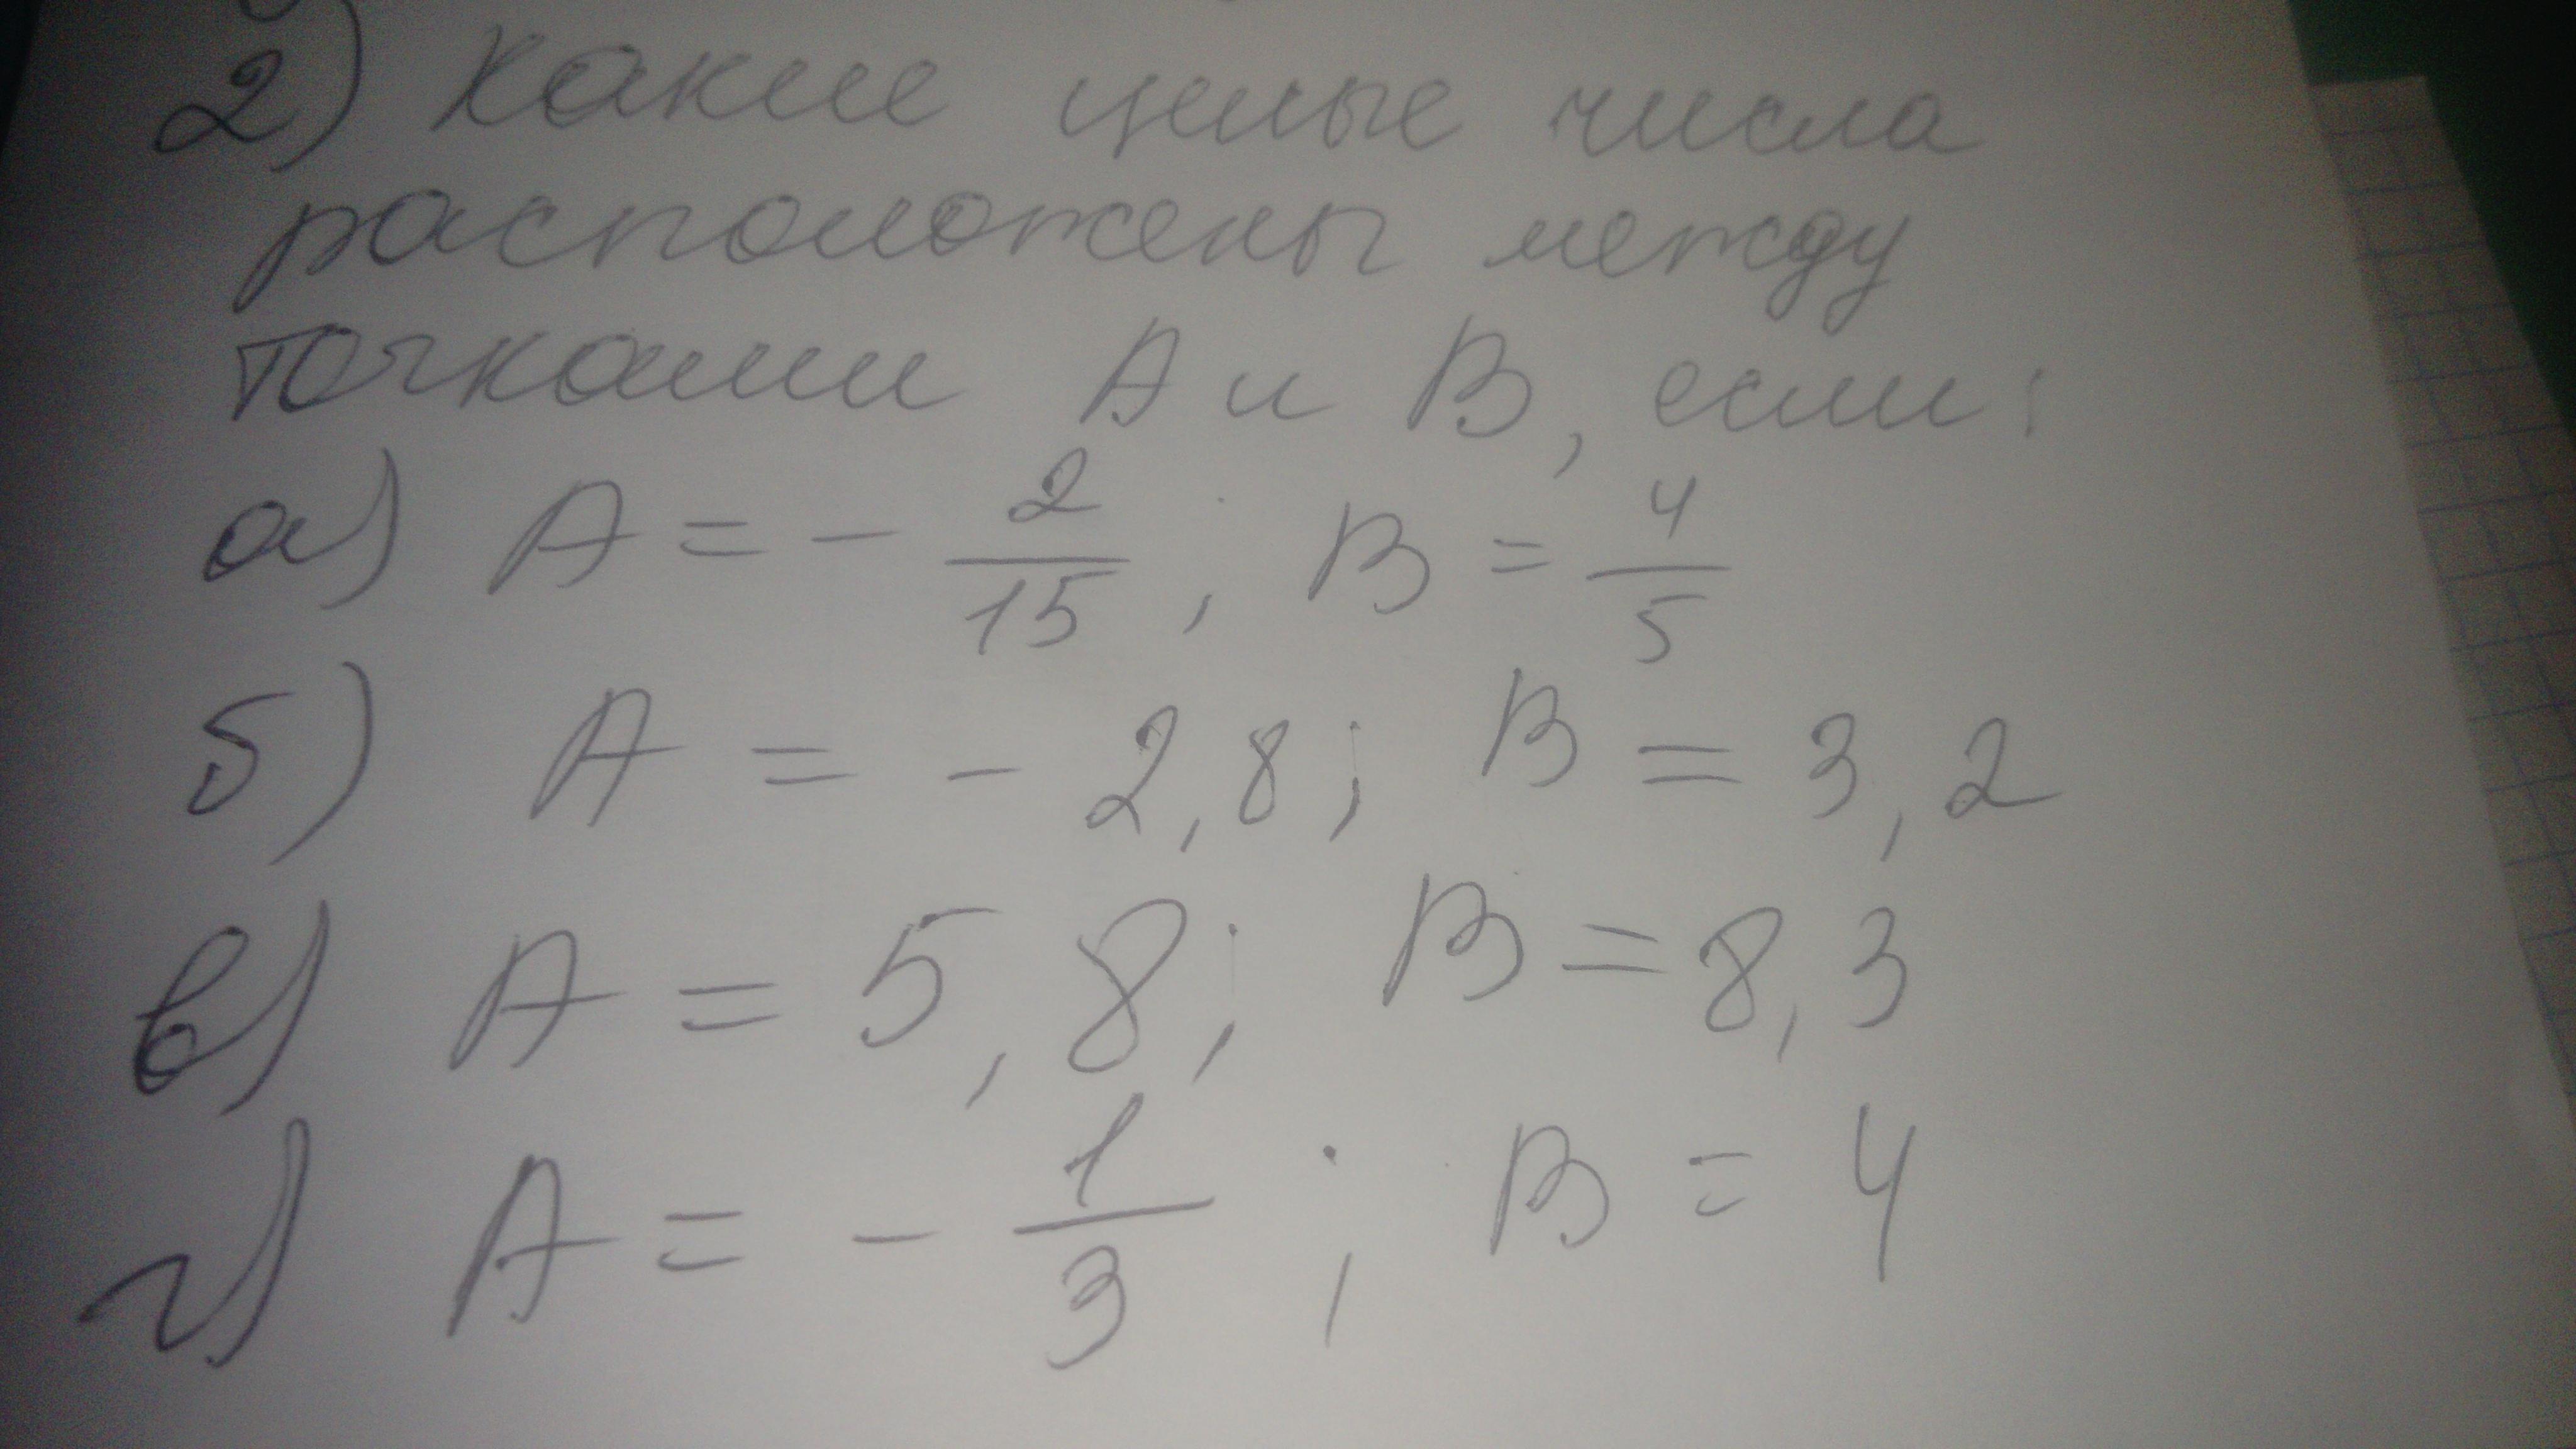 2) Какие целые числа
расположены между
точками А и В, если:
а) А = - 2/15 ; В = 4/5
б) А = - 2,8; В = 3,2
в) А = 5,8; В = 8,3
г) А = - 1/3 ; В = 4